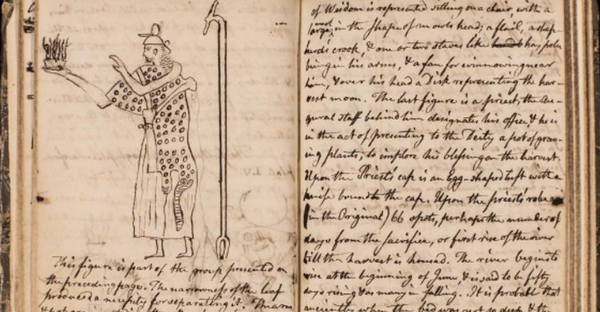 This figure is part of the group presented on
the preceding page. The narrowness of the leaf
produced a necessity for separating it.
of Wisdom is represented sitting on a chair, with a
in the Shape of an owls head; a flail, a shep
herds crook, & one or two staves like hay poles
being in his arms, & a fan for winnowing near
him, & over his head a Disk representing the har-
vest moon. The last figure is a priest, the Au-
gural staff behind him designates his office & he is
in the act of presenting to the Deity a pot of grow-
ing plants, to implore his blessing on the harvest.
Upon the Priest's cap is an Egg-shaped tuft with a
bound to the cap. Upon the priests' robe are
(in the Original) 66 spots, perhaps the number of
days from the sacrifice, or first rise of the river
till the harvest is housed. The river begins to
rise at the beginning of June, & is said to be fifty
days rising & as many in falling. It is probable that
anciently when the bed was not so